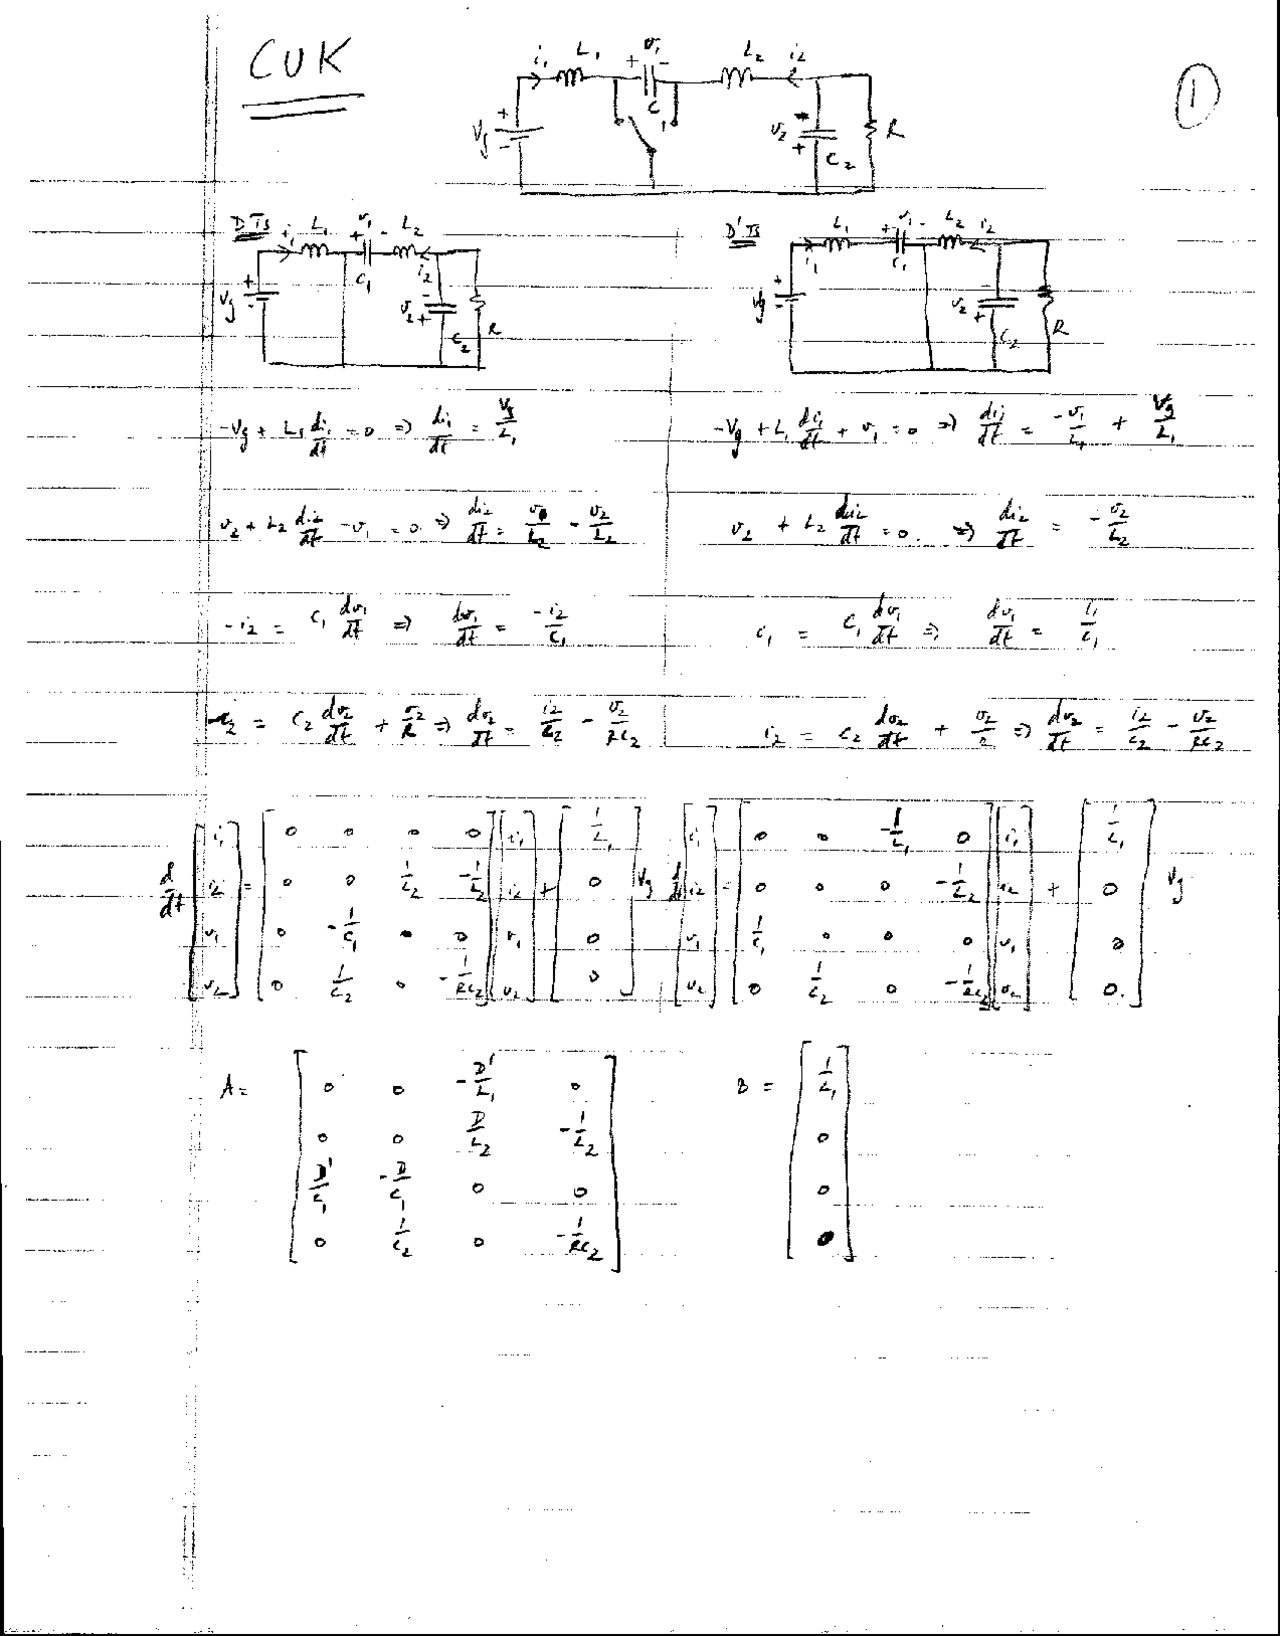 CUK
1
i₁ L₁ + v₁ - L₂ i₂
C₁
Vg + - v₂ + C₂ R
DTs i₁ L₁ + v₁ - L₂
C₁ i₂
Vg + - v₂ - + C₂ R
D'Ts L₁ + v₁ - L₂ i₂
i₁ C₁
Vg + - v₂ - + C₂ R
-Vg + L₁ di₁/dt = 0 ⇒ di₁/dt = Vg/L₁
-Vg + L₁ di₁/dt + v₁ = 0 ⇒ di₁/dt = -v₁/L₁ + Vg/L₁
v₂ + L₂ di₂/dt - v₁ = 0 ⇒ di₂/dt = v₁/L₂ - v₂/L₂
v₂ + L₂ di₂/dt = 0. ⇒ di₂/dt = -v₂/L₂
-i₂ = C₁ dv₁/dt ⇒ dv₁/dt = -i₂/C₁
i₁ = C₁ dv₁/dt ⇒ dv₁/dt = i₁/C₁
i₂ = C₂ dv₂/dt + v₂/R ⇒ dv₂/dt = i₂/C₂ - v₂/RC₂
i₂ = C₂ dv₂/dt + v₂/R ⇒ dv₂/dt = i₂/C₂ - v₂/RC₂
d/dt [i₁ i₂ v₁ v₂] =
0 0 0 0
0 0 1/L₂ -1/L₂
0 -1/C₁ 0 0
0 1/C₂ 0 -1/RC₂
[i₁ i₂ v₁ v₂] + [1/L₁ 0 0 0] Vg
d/dt [i₁ i₂ v₁ v₂] =
0 0 -1/L₁ 0
0 0 0 -1/L₂
1/C₁ 0 0 0
0 1/C₂ 0 -1/RC₂
[i₁ i₂ v₁ v₂] + [1/L₁ 0 0 0.] Vg
A =
0 0 -D'/L₁ 0
0 0 D/L₂ -1/L₂
D'/C₁ -D/C₁ 0 0
0 1/C₂ 0 -1/RC₂
B =
1/L₁
0
0
0